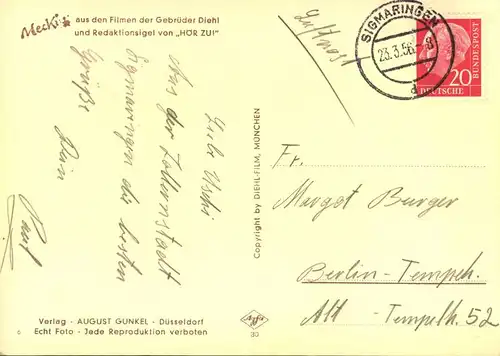 Mecki
aus den Filmen der Gebrüder Diehl
und Redaktionsigel von „HÖR ZU!"
Luftpost
SIGMARINGEN
23.3.56-8
d
20
DEUTSCHE
BUNDESPOST
Liebe Uschi
Aus der Zollernstadt
Sigmaringen die besten
Grüße Dein
Paul
Copyright by DIEHL-FILM, MÜNCHEN
Fr.
Margot Burger
Berlin-Tempeh.
Alt - Tempelh. 52
Verlag - AUGUST GUNKEL - Düsseldorf
Echt Foto - Jede Reproduktion verboten
30